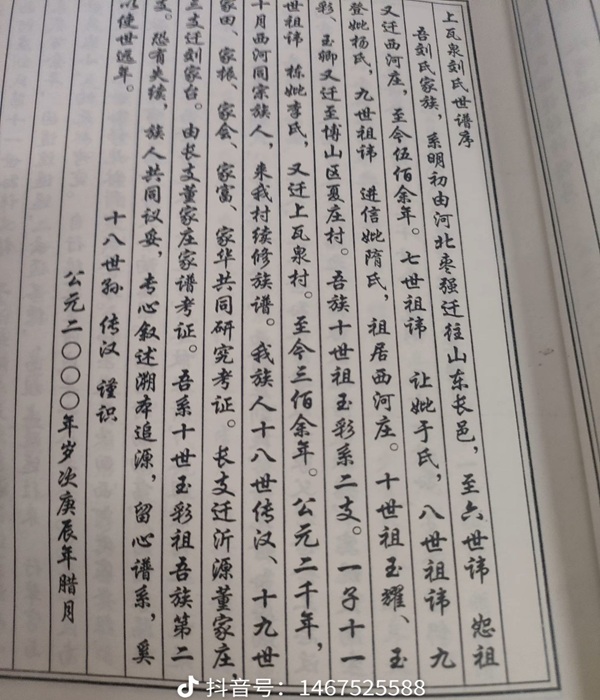 上瓦泉刘氏世谱序
吾刘氏家族，系明初由河北枣强迁往山东长邑，至六世讳 恕祖
又迁西河庄，至今伍佰余年。七世祖讳 让妣于氏，八世祖讳 九
登妣杨氏，九世祖讳 进信妣隋氏，祖居西河庄。十世祖玉耀、玉
彩、玉卿又迁至博山区夏庄村。吾族十世祖玉彩系二支。一子十一
世祖讳 栋妣李氏，又迁上瓦泉村。至今三佰余年。公元二千年，
十月西河同宗族人，来我村续修族谱。我族人十八世传汉、十九世
家田、家振、家会、家富、家华共同研究考证。长支迁沂源董家庄，
三支迁刘家台。由长支董家庄家谱考证。吾系十世玉彩祖吾族第二
支。恐有失续，族人共同议妥，专心叙述溯本追源，留心谱系，奚
以使世远年。
十八世孙 传汉 谨识
公元二〇〇〇年岁次庚辰年腊月
抖音号：1467525588